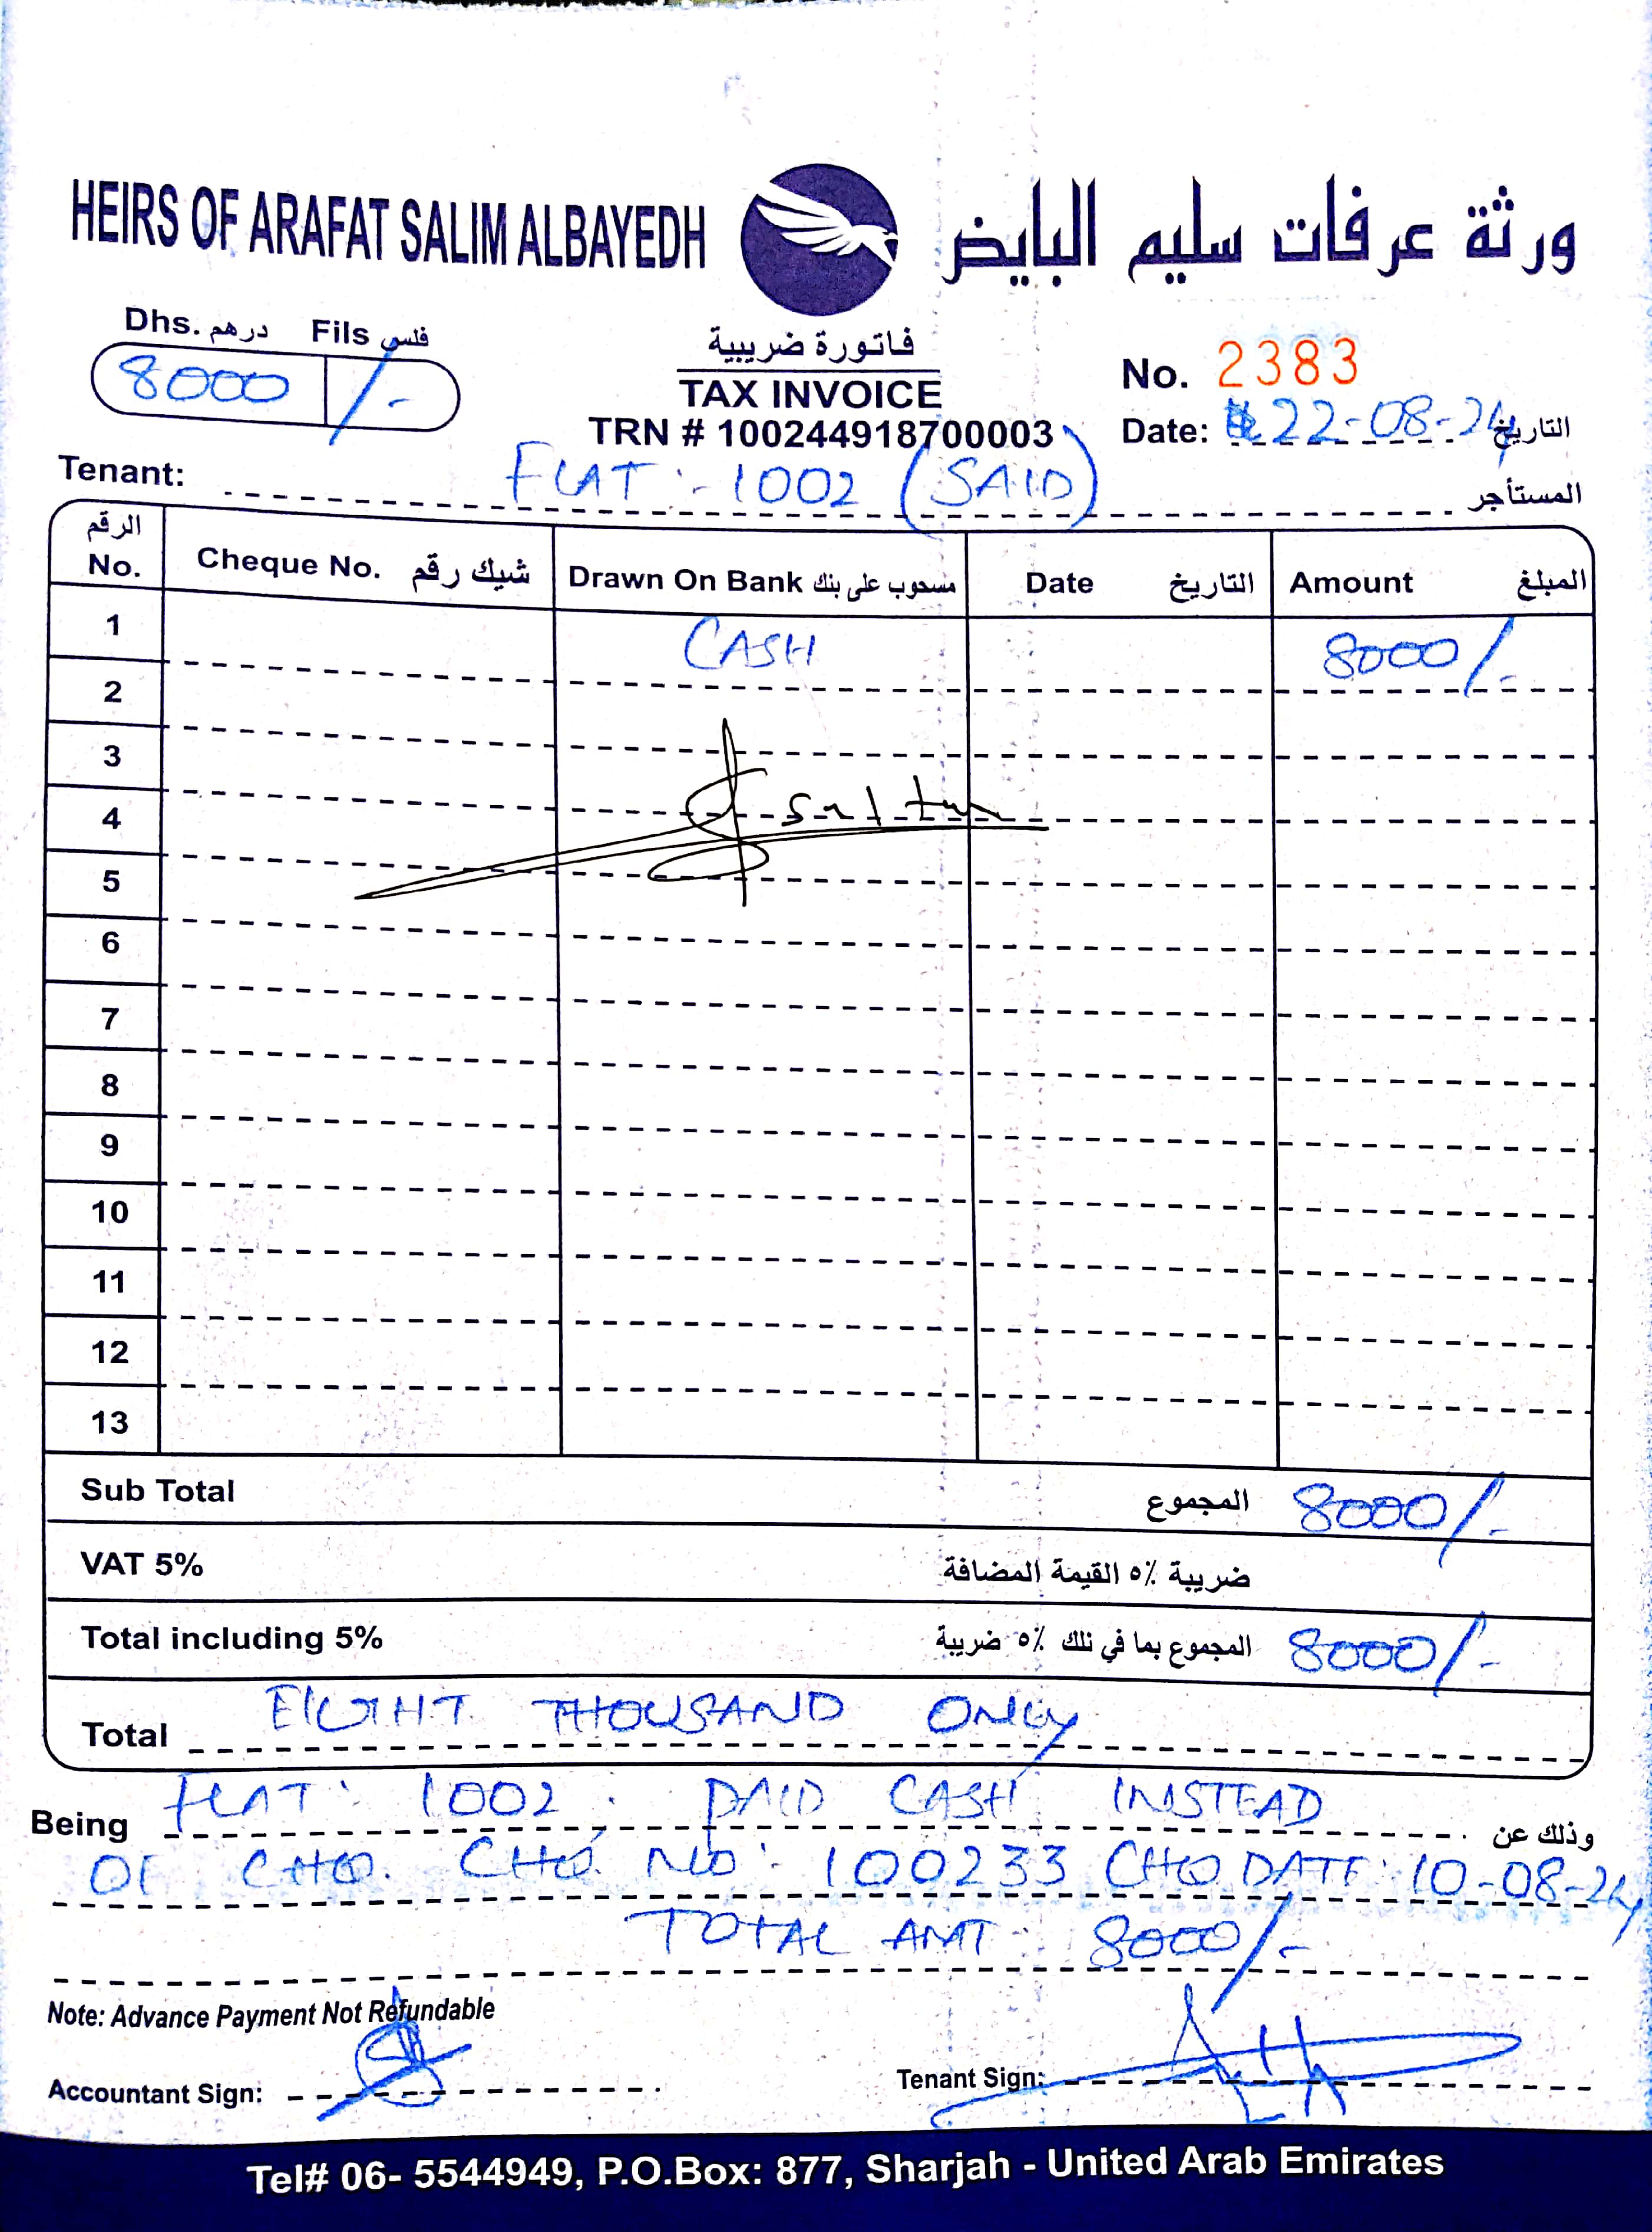 HEIRS OF ARAFAT SALIM ALBAYEDH ورثة عرفات سليم البايض
Dhs. درهم Fils فلس
8000 /-
فاتورة ضريبية
TAX INVOICE
TRN # 100244918700003
No. 2383
Date: 22-08-24 التاريخ
Tenant: FLAT :- 1002 (SAID) المستأجر
الرقم No. Cheque No. شيك رقم Drawn On Bank مسحوب على بنك Date التاريخ Amount المبلغ
1 CASH 8000/-
2
3
4
5
6
7
8
9
10
11
12
13
Sub Total المجموع 8000/-
VAT 5% ضريبة ٥٪ القيمة المضافة
Total including 5% المجموع بما في ذلك ٥٪ ضريبة 8000/-
Total EIGHT THOUSAND ONLY
Being FLAT: 1002. PAID CASH INSTEAD وذلك عن
OF CHQ. CHQ. NO:- 100233 CHQ DATE: 10-08-24
TOTAL AMT: 8000/-
Note: Advance Payment Not Refundable
Accountant Sign: Tenant Sign:
Tel# 06- 5544949, P.O.Box: 877, Sharjah - United Arab Emirates